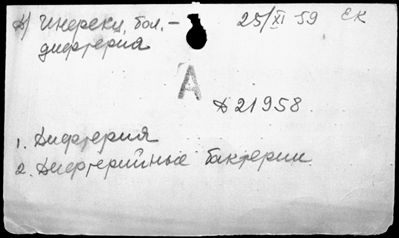 Д) Инфекц. бол. – 25/XI 59 ЕК
дифтерия
А
Д 21958
1. Дифтерия
2. Дифтерийные бактерии